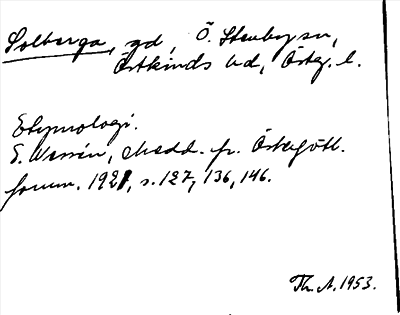 Solberga, gd, Ö. Stenby sn,
Östkinds hd, Östg. l.
Etymologi.
E. Wessén, Medd. fr. Östergötl.
fornm. 1921, s. 127, 136, 146.
Th. A. 1953.